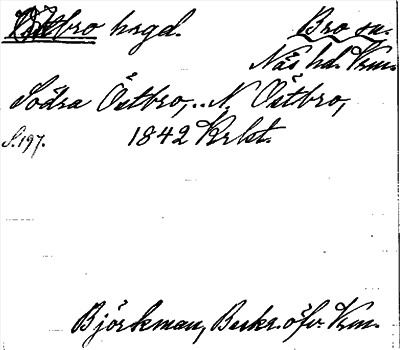 Östbro hrgd. Bro sn.
Näs hd. Vrm.
Södra Östbro, .. N. Östbro,
S. 197. 1842 Krkt.
Björkman, Beskr. öfv. Vrm.